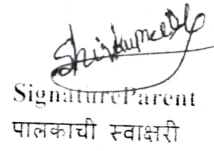 SignatureParent
पालकाची स्वाक्षरी